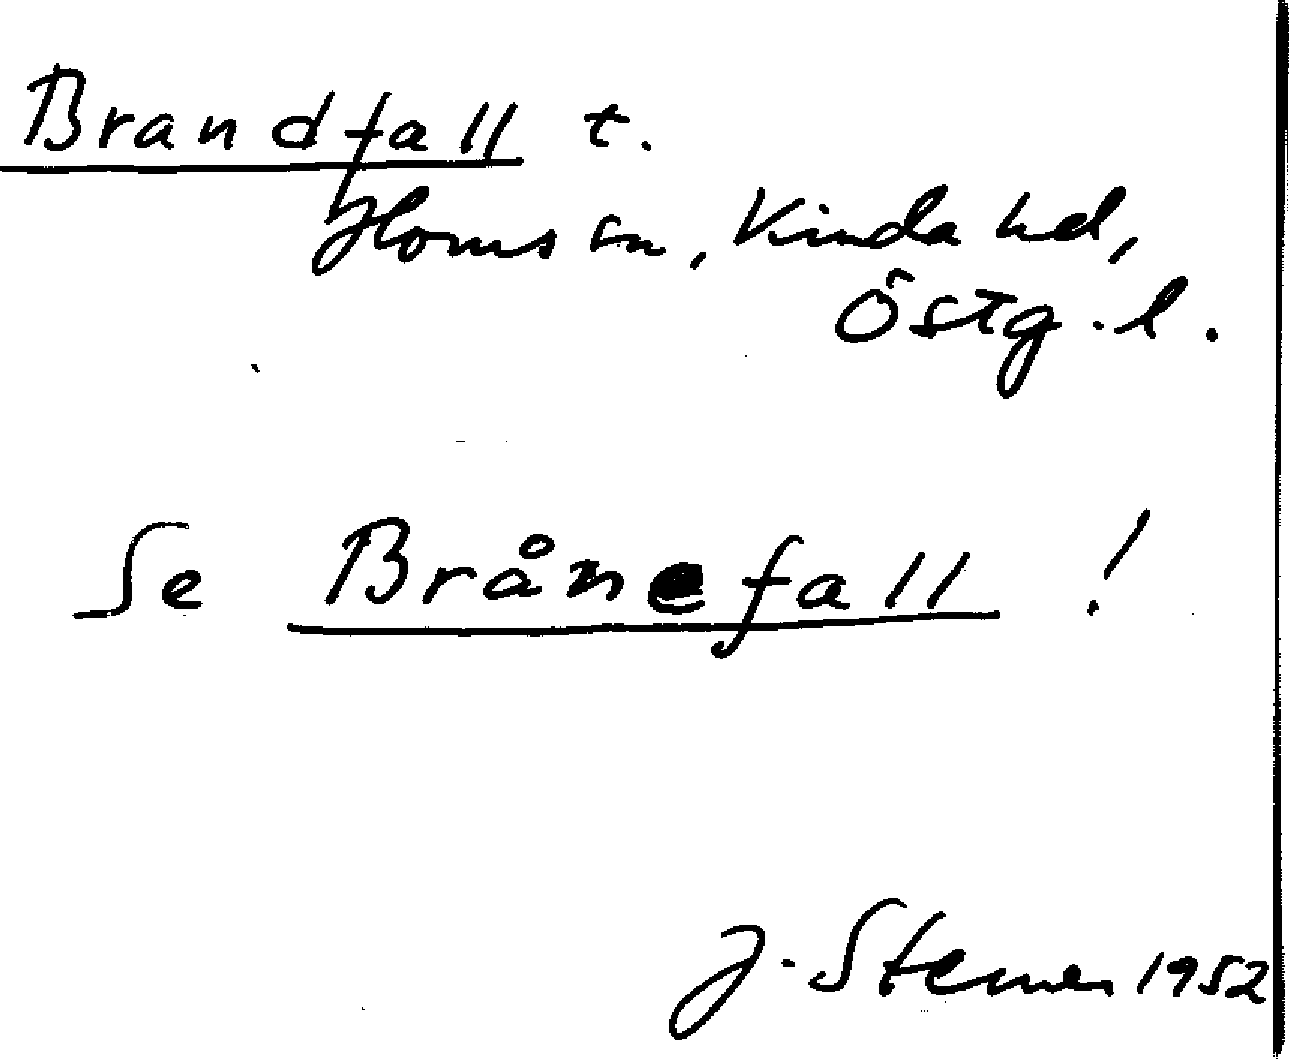 Brandfall t.
Horns sn, Kinda hd,
Östg. l.
Se Brånefall!
J. Sterner 1952